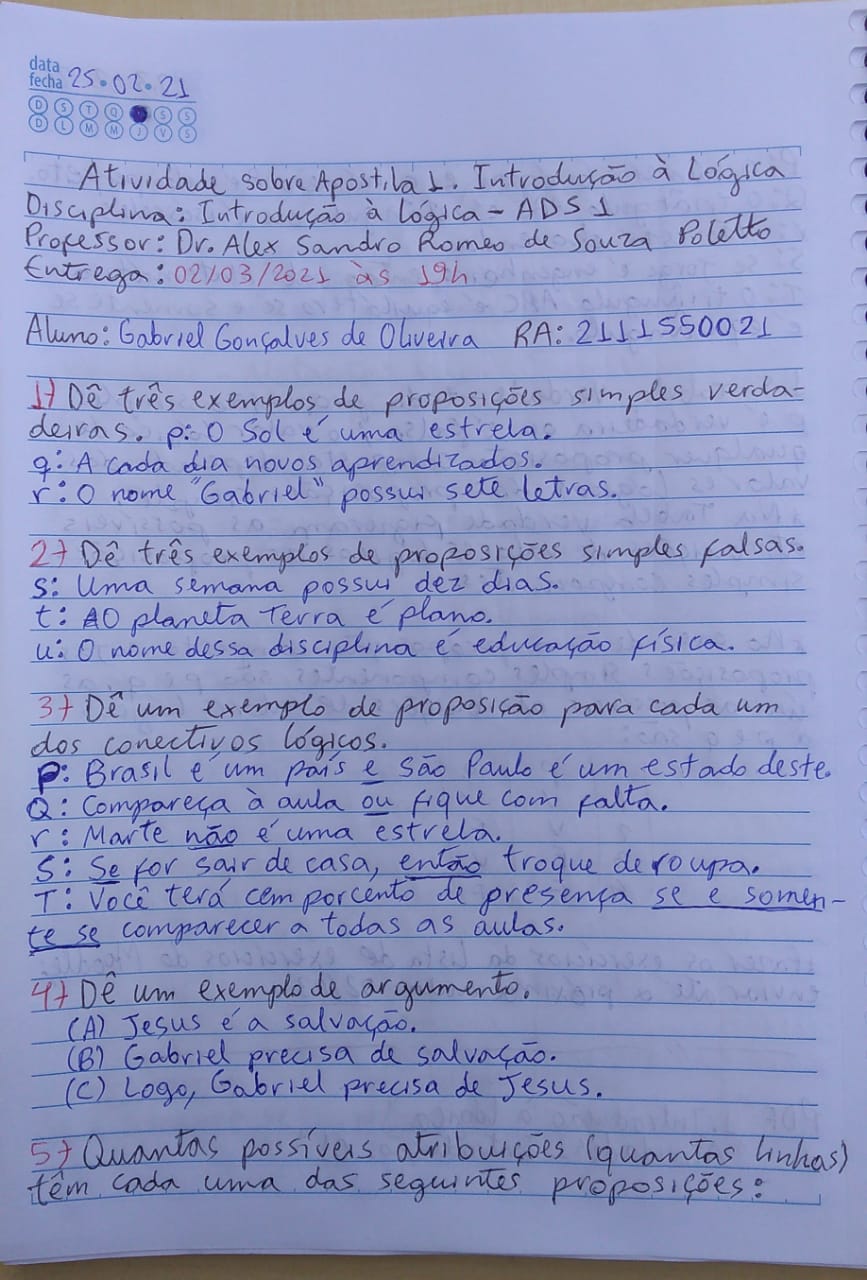 data
fecha 25.02.21
D S T Q S S
D L M M J V S
Atividade sobre Apostila 1. Introdução à Lógica
Disciplina: Introdução à lógica - ADS 1
Professor: Dr. Alex Sandro Romeo de Souza Poletto
Entrega: 02/03/2021 às 19h.
Aluno: Gabriel Gonçalves de Oliveira RA: 2111550021
1) Dê três exemplos de proposições simples verda-
deiras. p: O Sol é uma estrela.
q: A cada dia novos aprendizados.
r: O nome "Gabriel" possui sete letras.
2) Dê três exemplos de proposições simples falsas.
s: Uma semana possui dez dias.
t: O planeta Terra é plano.
u: O nome dessa disciplina é educação física.
3) Dê um exemplo de proposição para cada um
dos conectivos lógicos.
P: Brasil é um país e São Paulo é um estado deste.
Q: Compareça à aula ou fique com falta.
r: Marte não é uma estrela.
S: Se for sair de casa, então troque de roupa.
T: Você terá cem porcento de presença se e somen-
te se comparecer a todas as aulas.
4) Dê um exemplo de argumento.
(A) Jesus é a salvação.
(B) Gabriel precisa de salvação.
(C) Logo, Gabriel precisa de Jesus.
5) Quantas possíveis atribuições (quantas linhas)
têm cada uma das seguintes proposições: